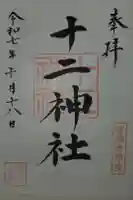 奉拝
十二神社
令和七年十月十八日